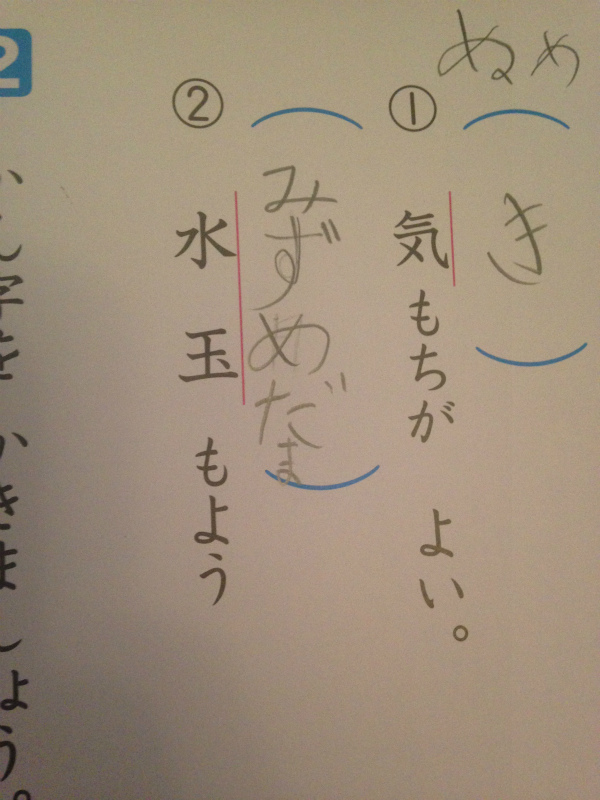 ぬめ
① 気もちが よい。
き
② 水玉 もよう
みずめだま
2
かん字を かきましょう。